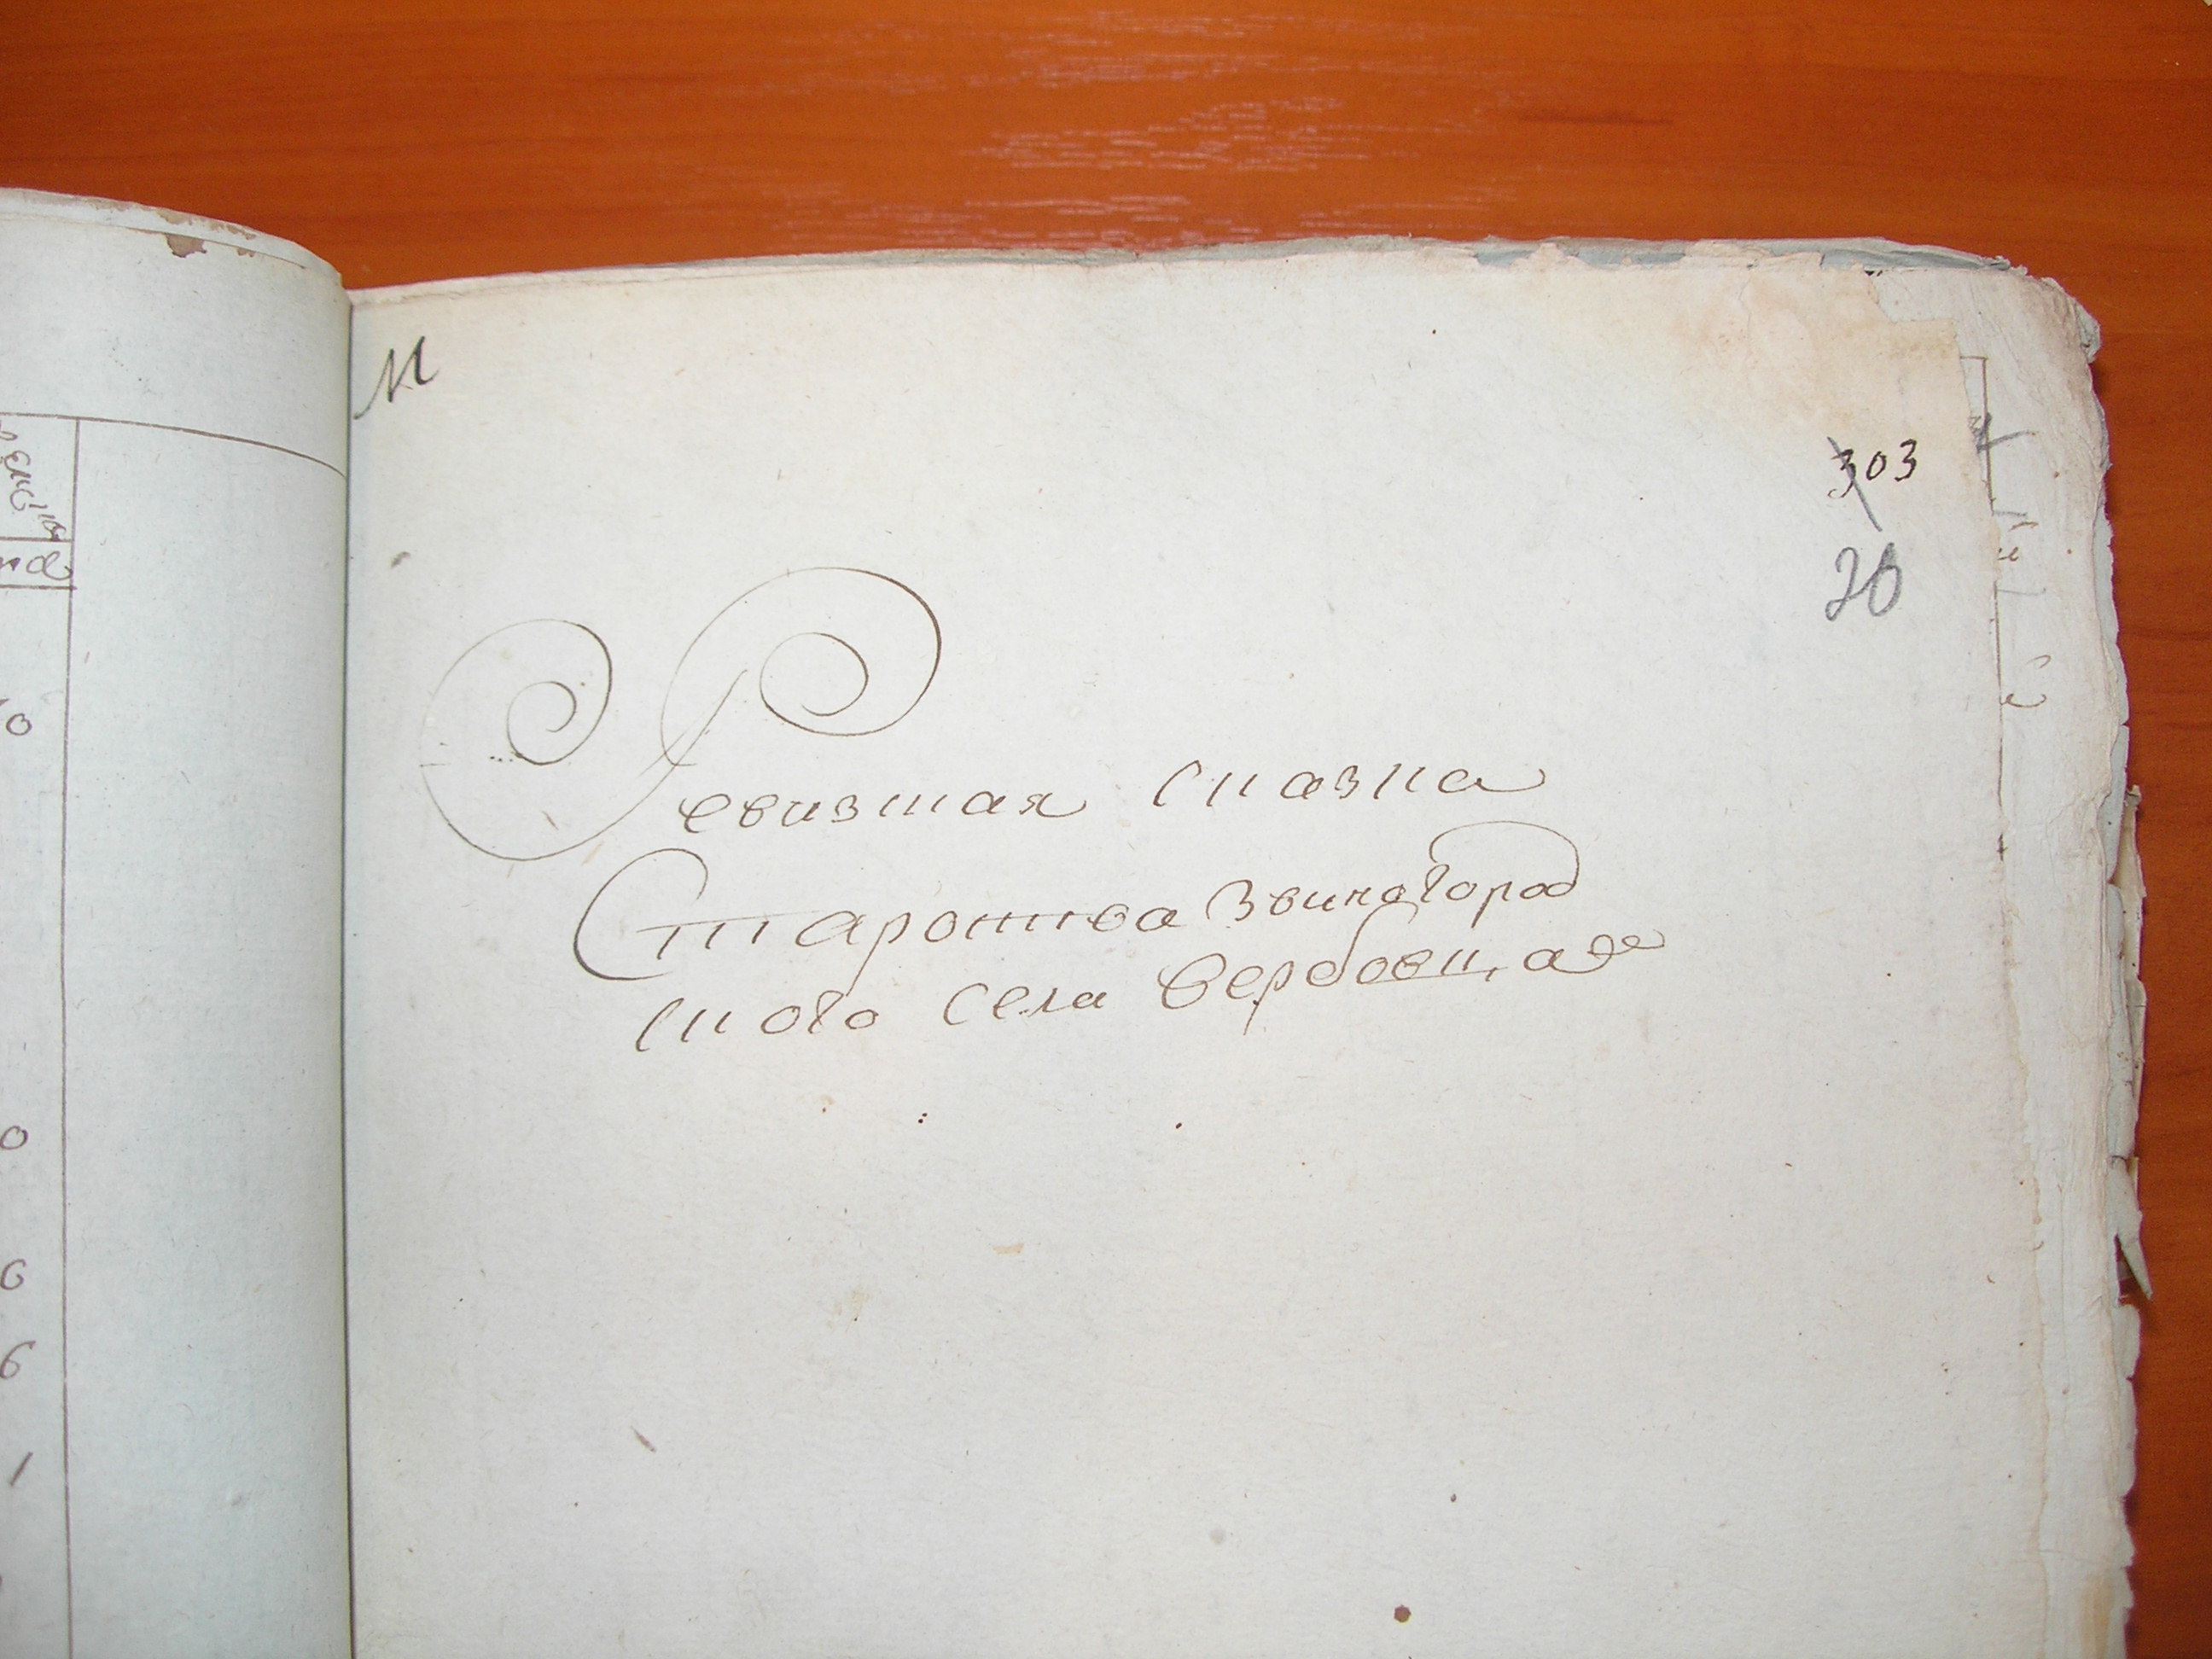 М
303
20
Ревизская сказка
Староства Звиногород
ского села Вербовца